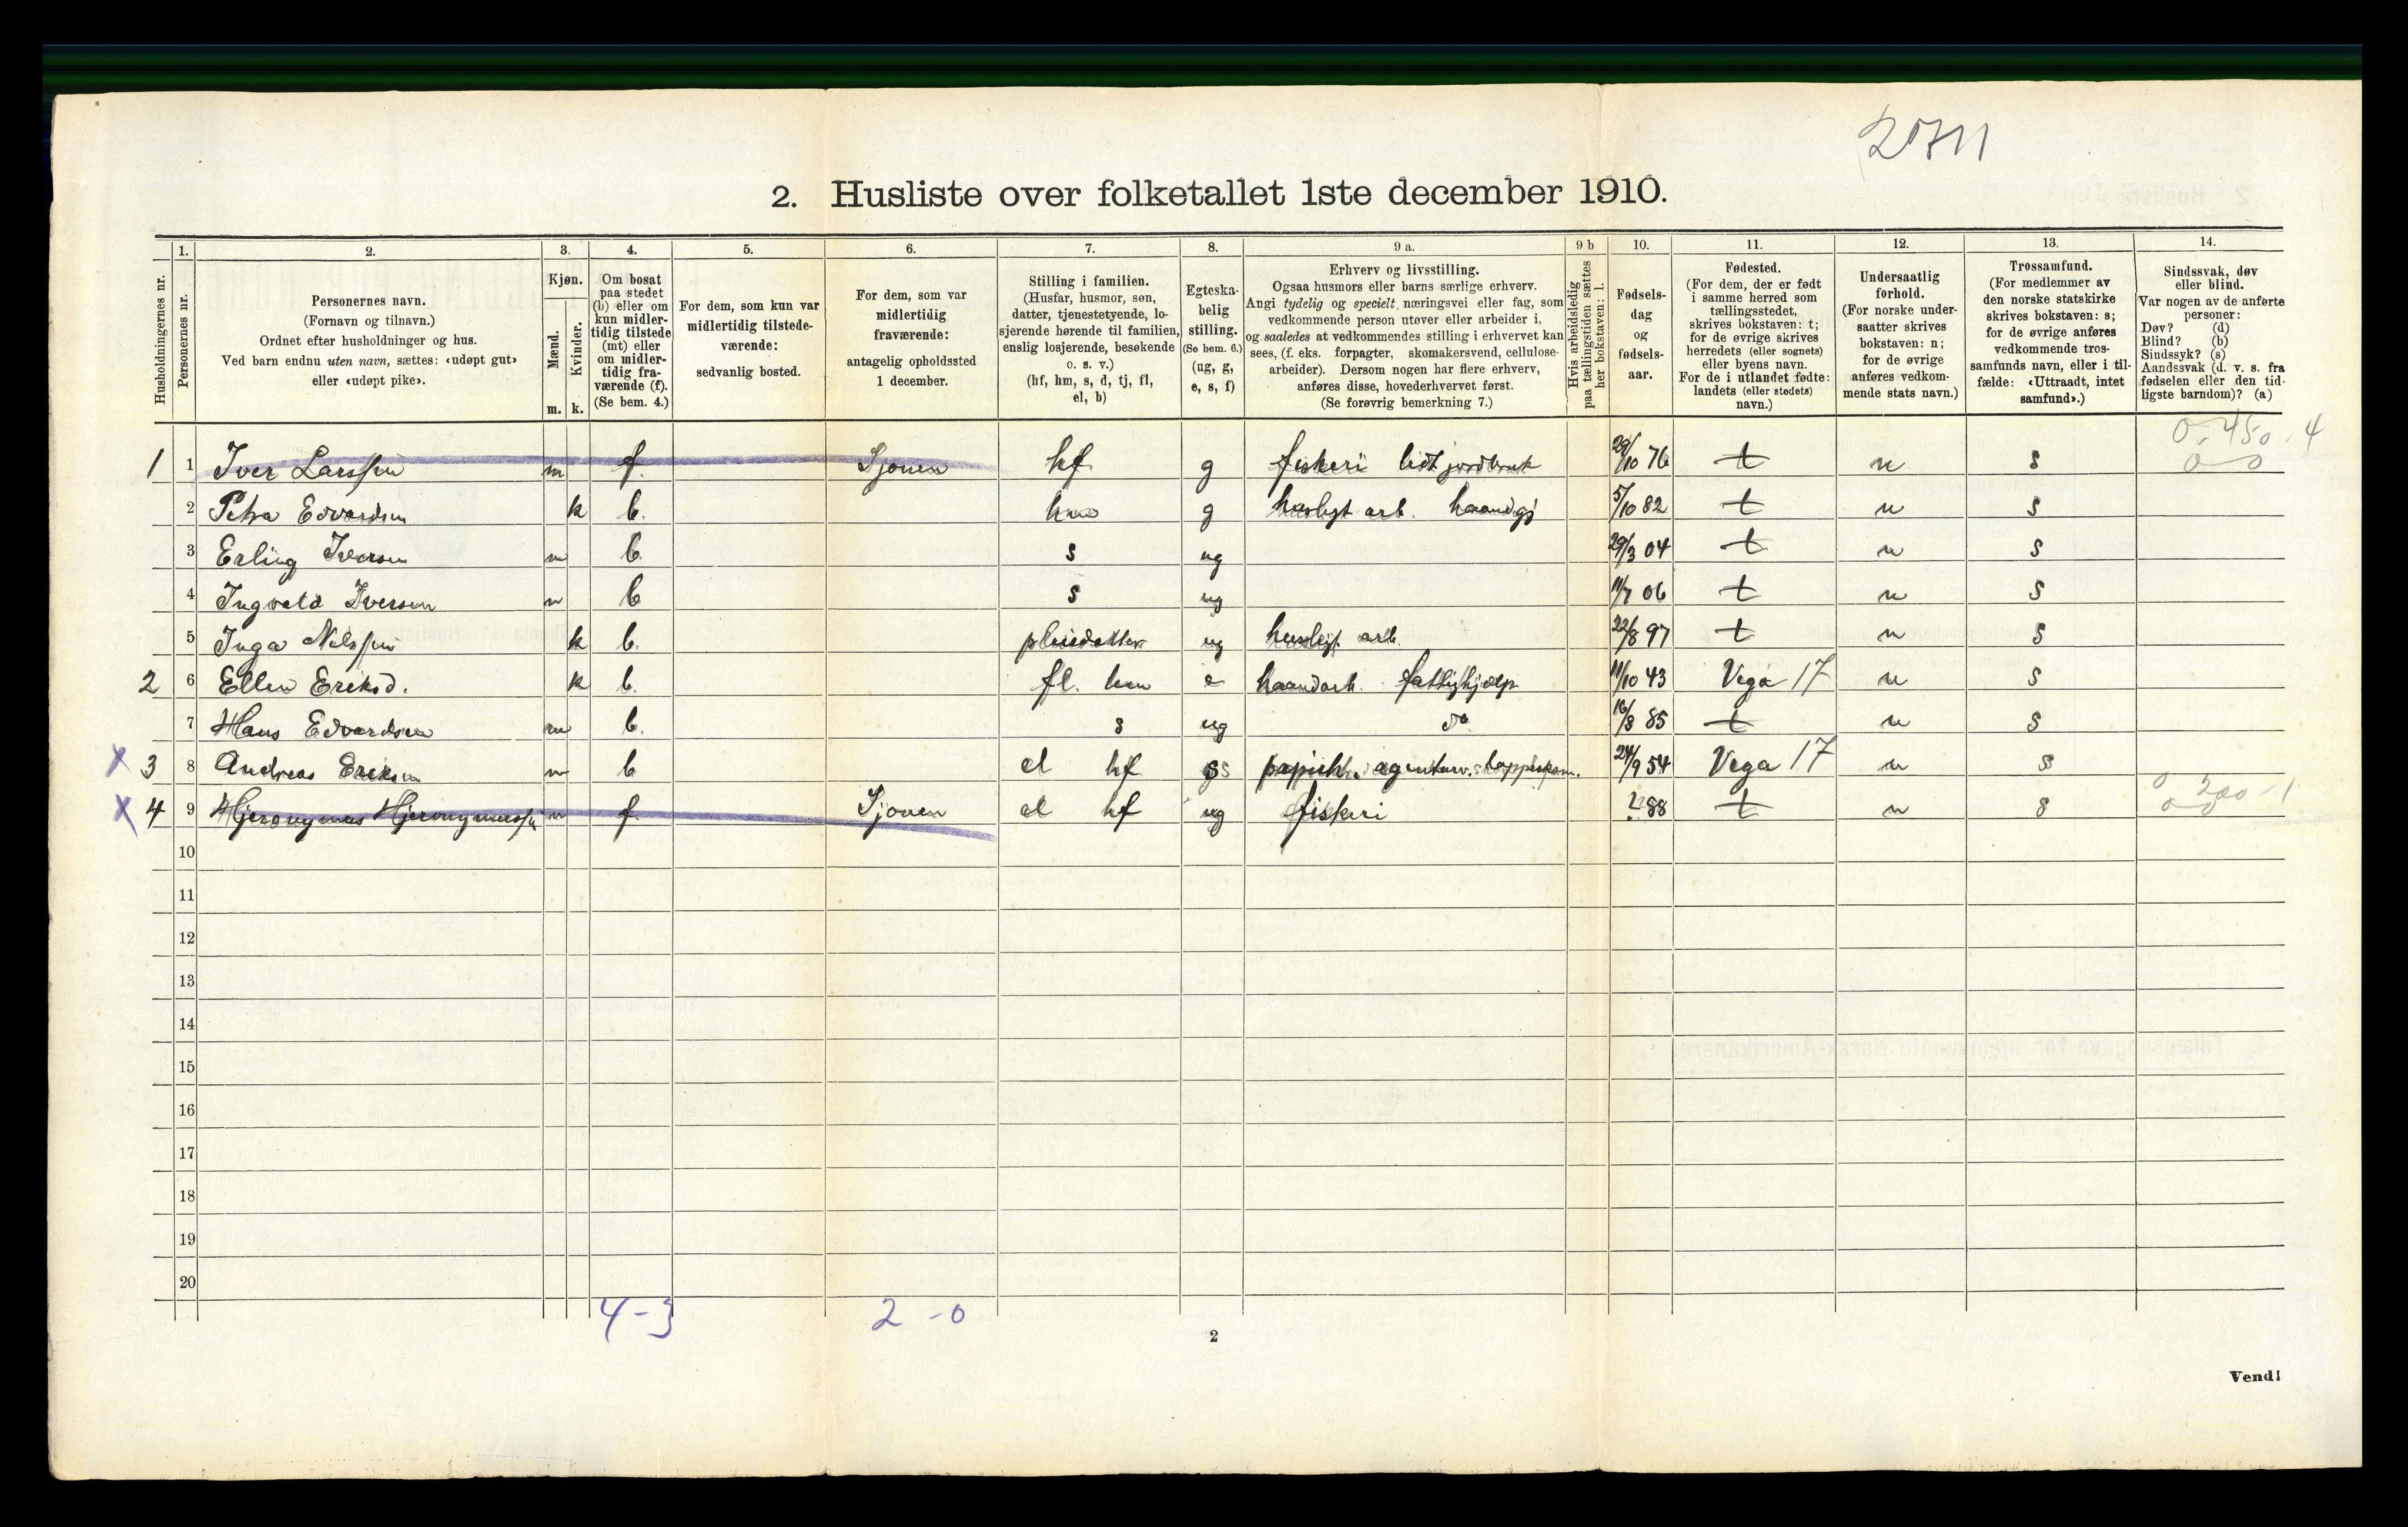 2 Husliste
2. Husliste over folketallet 1ste december 1910.
1. 2. 3. 4. 5. 6. 7. 8. 9 a. 9 b 10. 11. 12. 13. 14.
Husholdningernes nr.
Personernes nr.
Personernes navn.
(Fornavn og tilnavn.)
Ordnet efter husholdninger og hus.
Ved barn endnu uten navn, sættes: «udøpt gut»
eller «udøpt pike».
Kjøn.
Mænd.
Kvinder.
m. k.
Om bosat
paa stedet
(b) eller om
kun midler-
tidig tilstede
(mt) eller
om midler-
tidig fra-
værende (f).
(Se bem. 4.)
For dem, som kun var
midlertidig tilstede-
værende:
sedvanlig bosted.
For dem, som var
midlertidig
fraværende:
antagelig opholdssted
1 december.
Stilling i familien.
(Husfar, husmor, søn,
datter, tjenestetyende, lo-
sjerende hørende til familien,
enslig losjerende, besøkende
o. s. v.)
(hf, hm, s, d, tj, fl,
el, b)
Egteska-
belig
stilling.
(Se bem. 6.)
(ug, g,
e, s, f)
Erhverv og livsstilling.
Ogsaa husmors eller barns særlige erhverv.
Angi tydelig og specielt næringsvei eller fag, som
vedkommende person utøver eller arbeider i,
og saaledes at vedkommendes stilling i erhvervet kan
sees, (f. eks. forpagter, skomakersvend, cellulose-
arbeider). Dersom nogen har flere erhverv,
anføres disse, hovederhvervet først.
(Se forøvrig bemerkning 7.)
Hvis arbeidsledig
paa tællingstiden sættes
her bokstaven: l.
Fødsels-
dag
og
fødsels-
aar.
Fødested.
(For dem, der er født
i samme herred som
tællingsstedet,
skrives bokstaven: t;
for de øvrige skrives
herredets (eller sognets)
eller byens navn.
For de i utlandet fødte:
landets (eller stedets)
navn.)
Undersaatlig
forhold.
(For norske under-
saatter skrives
bokstaven: n;
for de øvrige
anføres vedkom-
mende stats navn.)
Trossamfund.
(For medlemmer av
den norske statskirke
skrives bokstaven: s;
for de øvrige anføres
vedkommende tros-
samfunds navn, eller i til-
fælde: «Uttraadt, intet
samfund».)
Sindssvak, døv
eller blind.
Var nogen av de anførte
personer:
Døv? (d)
Blind? (b)
Sindssyk? (s)
Aandssvak (d. v. s. fra
fødselen eller den tid-
ligste barndom)? (a)
0-450-4
1 1 Iver Larssen m f. Sjonen hf. g fiskeri lidt jordbruk 29/10 76 t n s 0-0
2 Petra Edvardsen k b. hm g husligt arb. haandgj 5/10 82 t n s
3 Erling Iversen m b. s ug 29/3 04 t n s
4 Ingvald Iversen m b s ug 11/7 06 t n s
5 Inga Nilssen k b. pleiedatter ug husligt arb. 22/8 97 t n s
2 6 Ellen Eriksd. k b. fl. hm e haandarb. fattighjælp 11/10 43 Vega 17 n s
7 Hans Edvardsen m b. s ug do 16/8 85 t n s
X 3 8 Andreas Eriksen m b el hf. s agentur 24/9 54 Vega 17 n s
0 200-1
X 4 9 Hjeronymus Hjeronymussen m f. Sjonen el hf ug fiskeri ? 88 t n s 0-0
10
11
12
13
14
15
16
17
18
19
20
4-3 2-0
2
Vend!